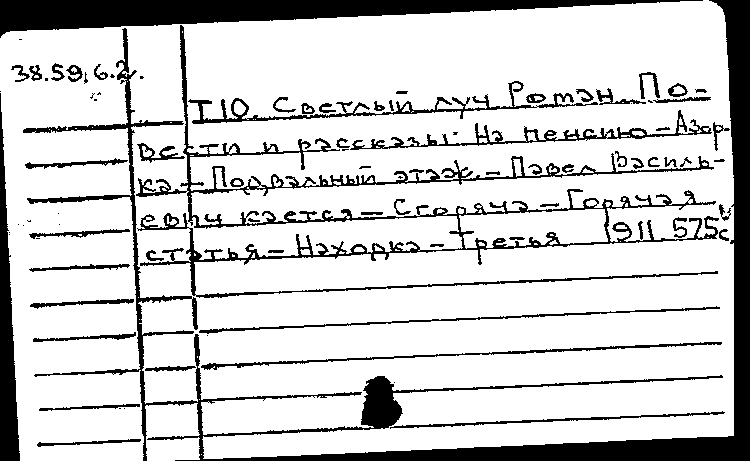 38.59.6.2.
Т 10. Светлый луч Роман. По-
вести и рассказы: На пенсию – Азор-
ка – Подвальный этаж. – Павел Василь-
евич кается – Сгоряча – Горячая
статья – Находка – Третья 1911. 575 с.